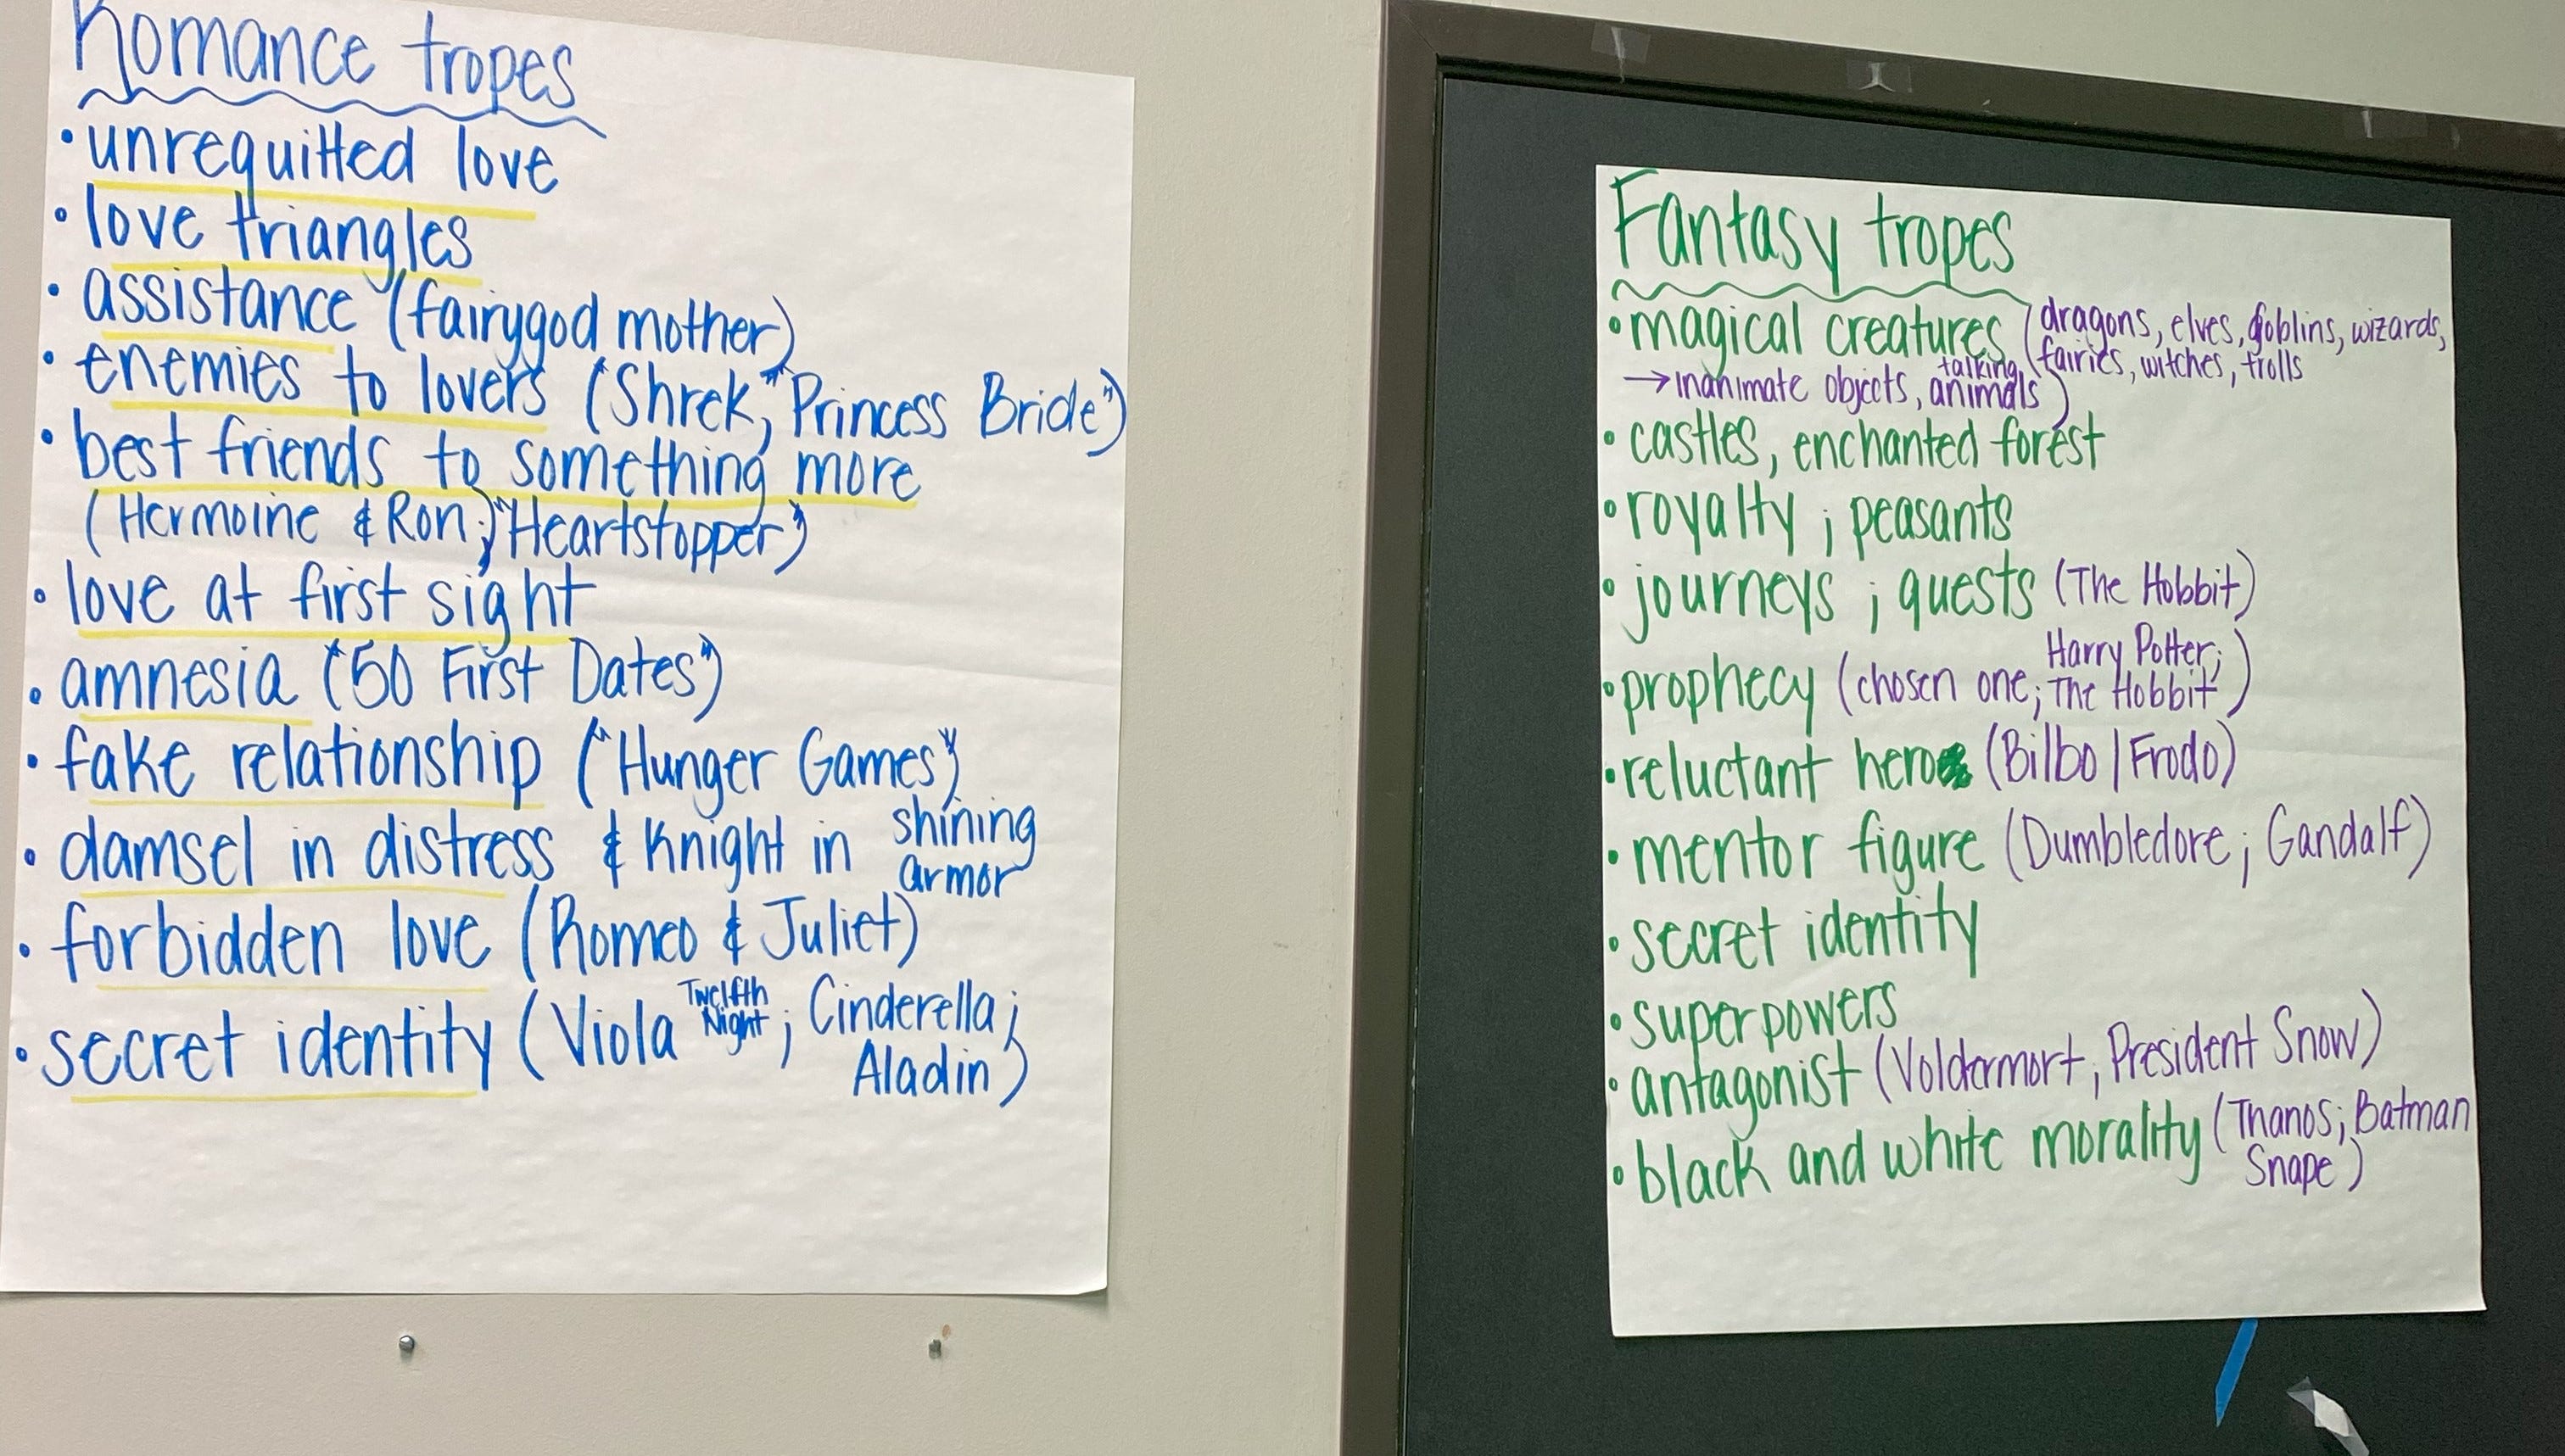 Romance tropes
• unrequitted love
• love triangles
• assistance (fairygod mother)
• enemies to lovers (Shrek, "Princess Bride")
• best friends to something more
(Hermoine & Ron; "Heartstopper")
• love at first sight
• amnesia ("50 First Dates")
• fake relationship ("Hunger Games")
• damsel in distress & Knight in shining armor
• forbidden love (Romeo & Juliet)
• secret identity (Viola Twelfth Night; Cinderella;
Aladin)
Fantasy tropes
• magical creatures (dragons, elves, goblins, wizards,
fairies, witches, trolls
→ inanimate objects, talking animals)
• castles, enchanted forest
• royalty; peasants
• journeys; quests (The Hobbit)
• prophecy (chosen one; Harry Potter; The Hobbit)
• reluctant hero (Bilbo | Frodo)
• mentor figure (Dumbledore; Gandalf)
• secret identity
• superpowers
• antagonist (Voldermort; President Snow)
• black and white morality (Thanos; Batman
Snape)